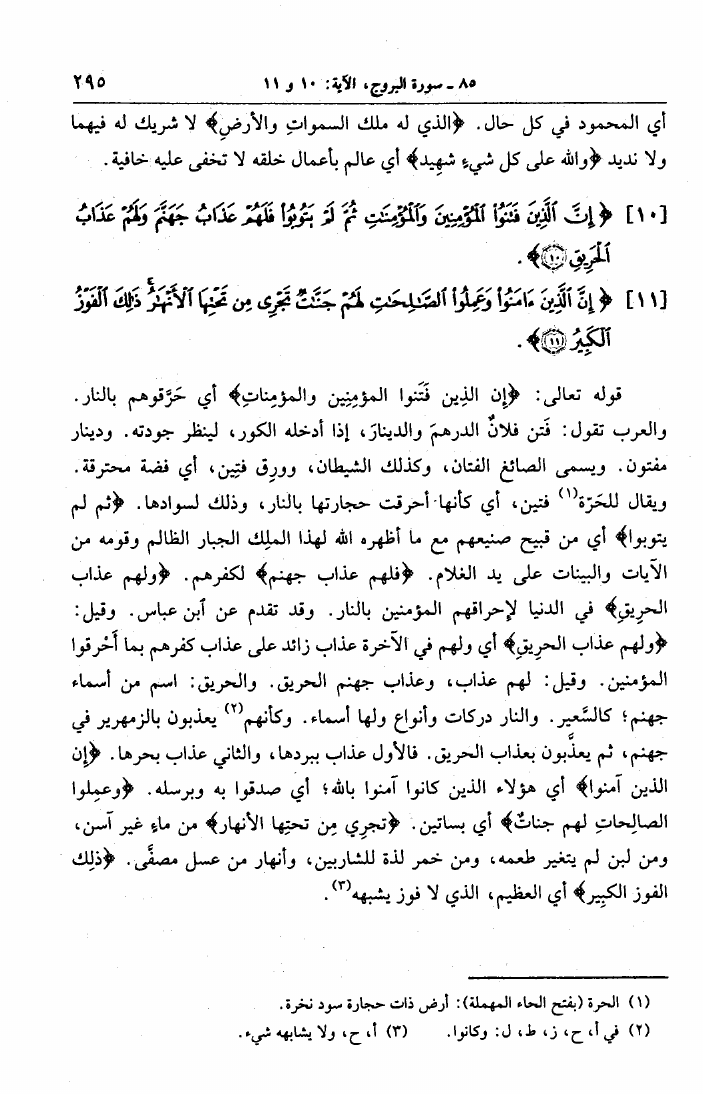 ٨٥ ـ سورة البروج، الآية: ١٠ و ١١ ٢٩٥
أي المحمود في كل حال. ﴿الذي له ملك السمواتِ والأرضِ﴾ لا شريك له فيهما
ولا نديد ﴿والله على كل شيءٍ شهِيد﴾ أي عالم بأعمال خلقه لا تخفى عليه خافية.
[١٠] ﴿إِنَّ ٱلَّذِينَ فَتَنُوا۟ ٱلْمُؤْمِنِينَ وَٱلْمُؤْمِنَٰتِ ثُمَّ لَمْ يَتُوبُوا۟ فَلَهُمْ عَذَابُ جَهَنَّمَ وَلَهُمْ عَذَابُ
ٱلْحَرِيقِ ١٠﴾.
[١١] ﴿إِنَّ ٱلَّذِينَ ءَامَنُوا۟ وَعَمِلُوا۟ ٱلصَّٰلِحَٰتِ لَهُمْ جَنَّٰتٌ تَجْرِى مِن تَحْتِهَا ٱلْأَنْهَٰرُ ۚ ذَٰلِكَ ٱلْفَوْزُ
ٱلْكَبِيرُ ١١﴾.
قوله تعالى: ﴿إِن الذِين فَتَنوا المؤمِنِين والمؤمِناتِ﴾ أي حَرَّقوهم بالنار.
والعرب تقول: فَتَن فلانٌ الدرهمَ والدينارَ، إذا أدخله الكور، لينظر جودته. ودينار
مفتون. ويسمى الصائغ الفتان، وكذلك الشيطان، وورِق فتِين، أي فضة محترقة.
ويقال للحَرّة(١) فتين، أي كأنها أحرقت حجارتها بالنار، وذلك لسوادها. ﴿ثم لم
يتوبوا﴾ أي من قبيح صنيعهم مع ما أظهره الله لهذا الملِك الجبار الظالم وقومه من
الآيات والبينات على يد الغلام. ﴿فلهم عذاب جهنم﴾ لكفرهم. ﴿ولهم عذاب
الحرِيقِ﴾ في الدنيا لإحراقهم المؤمنين بالنار. وقد تقدم عن ٱبن عباس. وقيل:
﴿ولهم عذاب الحرِيقِ﴾ أي ولهم في الآخرة عذاب زائد على عذاب كفرهم بما أَحْرقوا
المؤمنين. وقيل: لهم عذاب، وعذاب جهنم الحريق. والحريق: اسم من أسماء
جهنم؛ كالسَّعير. والنار دركات وأنواع ولها أسماء. وكأنهم(٢) يعذبون بالزمهرير في
جهنم، ثم يعذَّبون بعذاب الحريق. فالأول عذاب ببردها، والثاني عذاب بحرها. ﴿إن
الذين آمنوا﴾ أي هؤلاء الذين كانوا آمنوا بالله؛ أي صدقوا به وبرسله. ﴿وعمِلوا
الصالِحاتِ لهم جناتٌ﴾ أي بساتين. ﴿تجرِي مِن تحتِها الأنهار﴾ من ماءٍ غير آسن،
ومن لبن لم يتغير طعمه، ومن خمر لذة للشاربين، وأنهار من عسل مصفًّى. ﴿ذلِك
الفوز الكبِير﴾ أي العظيم، الذي لا فوز يشبهه(٣).
(١) الحرة (بفتح الحاء المهملة): أرض ذات حجارة سود نخرة.
(٢) في أ، ح، ز، ط، ل: وكانوا. (٣) أ، ح، ولا يشابهه شيء.